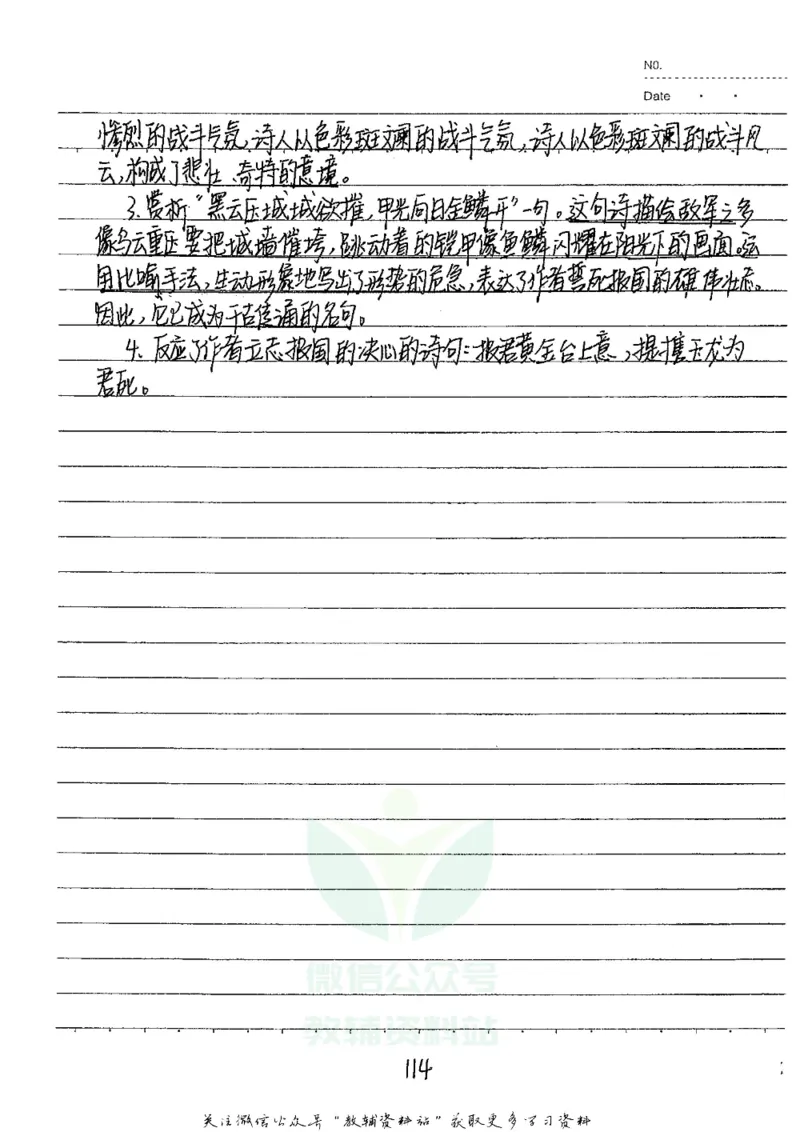 No.
Date
惨烈的战斗气氛,诗人以色彩斑斓的战斗气氛,诗人以色彩斑斓的战斗风
云,构成了悲壮、奇特的意境。
3.赏析"黑云压城城欲摧,甲光向日金鳞开"一句。这句诗描绘敌军之多
像乌云重压要把城墙催垮,跳动着的铠甲像鱼鳞闪耀在阳光下的画面。运
用比喻手法,生动形象地写出了形势的危急,表达了作者誓死报国的雄伟壮志。
因此,它已成为千古传诵的名句。
4.反应了作者立志报国的决心的诗句:报君黄金台上意,提携玉龙为
君死。
微信公众号
教辅资料站
114
关注微信公众号"教辅资料站"获取更多学习资料